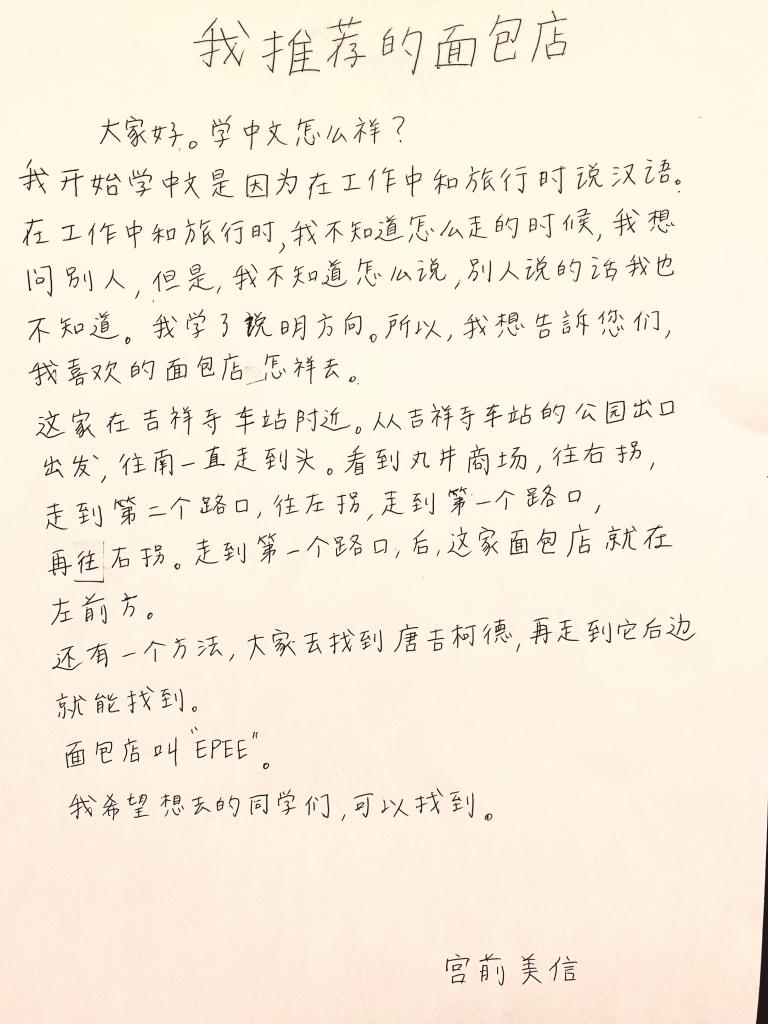 我推荐的面包店
大家好。学中文怎么样？
我开始学中文是因为在工作中和旅行时说汉语。
在工作中和旅行时,我不知道怎么走的时候,我想
问别人,但是,我不知道怎么说,别人说的话我也
不知道。我学了说明方向。所以,我想告訴您们,
我喜欢的面包店怎样去。
这家在吉祥寺车站附近。从吉祥寺车站的公园出口
出发,往南一直走到头。看到丸井商场,往右拐,
走到第二个路口,往左拐,走到第一个路口,
再往右拐。走到第一个路口,后,这家面包店就在
左前方。
还有一个方法,大家去找到唐吉柯德,再走到它后边
就能找到。
面包店叫"EPEE"。
我希望想去的同学们,可以找到。
宮前美信